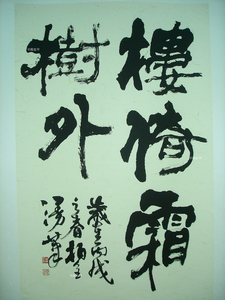 樓倚霜
樹外
歲在丙戌
之春